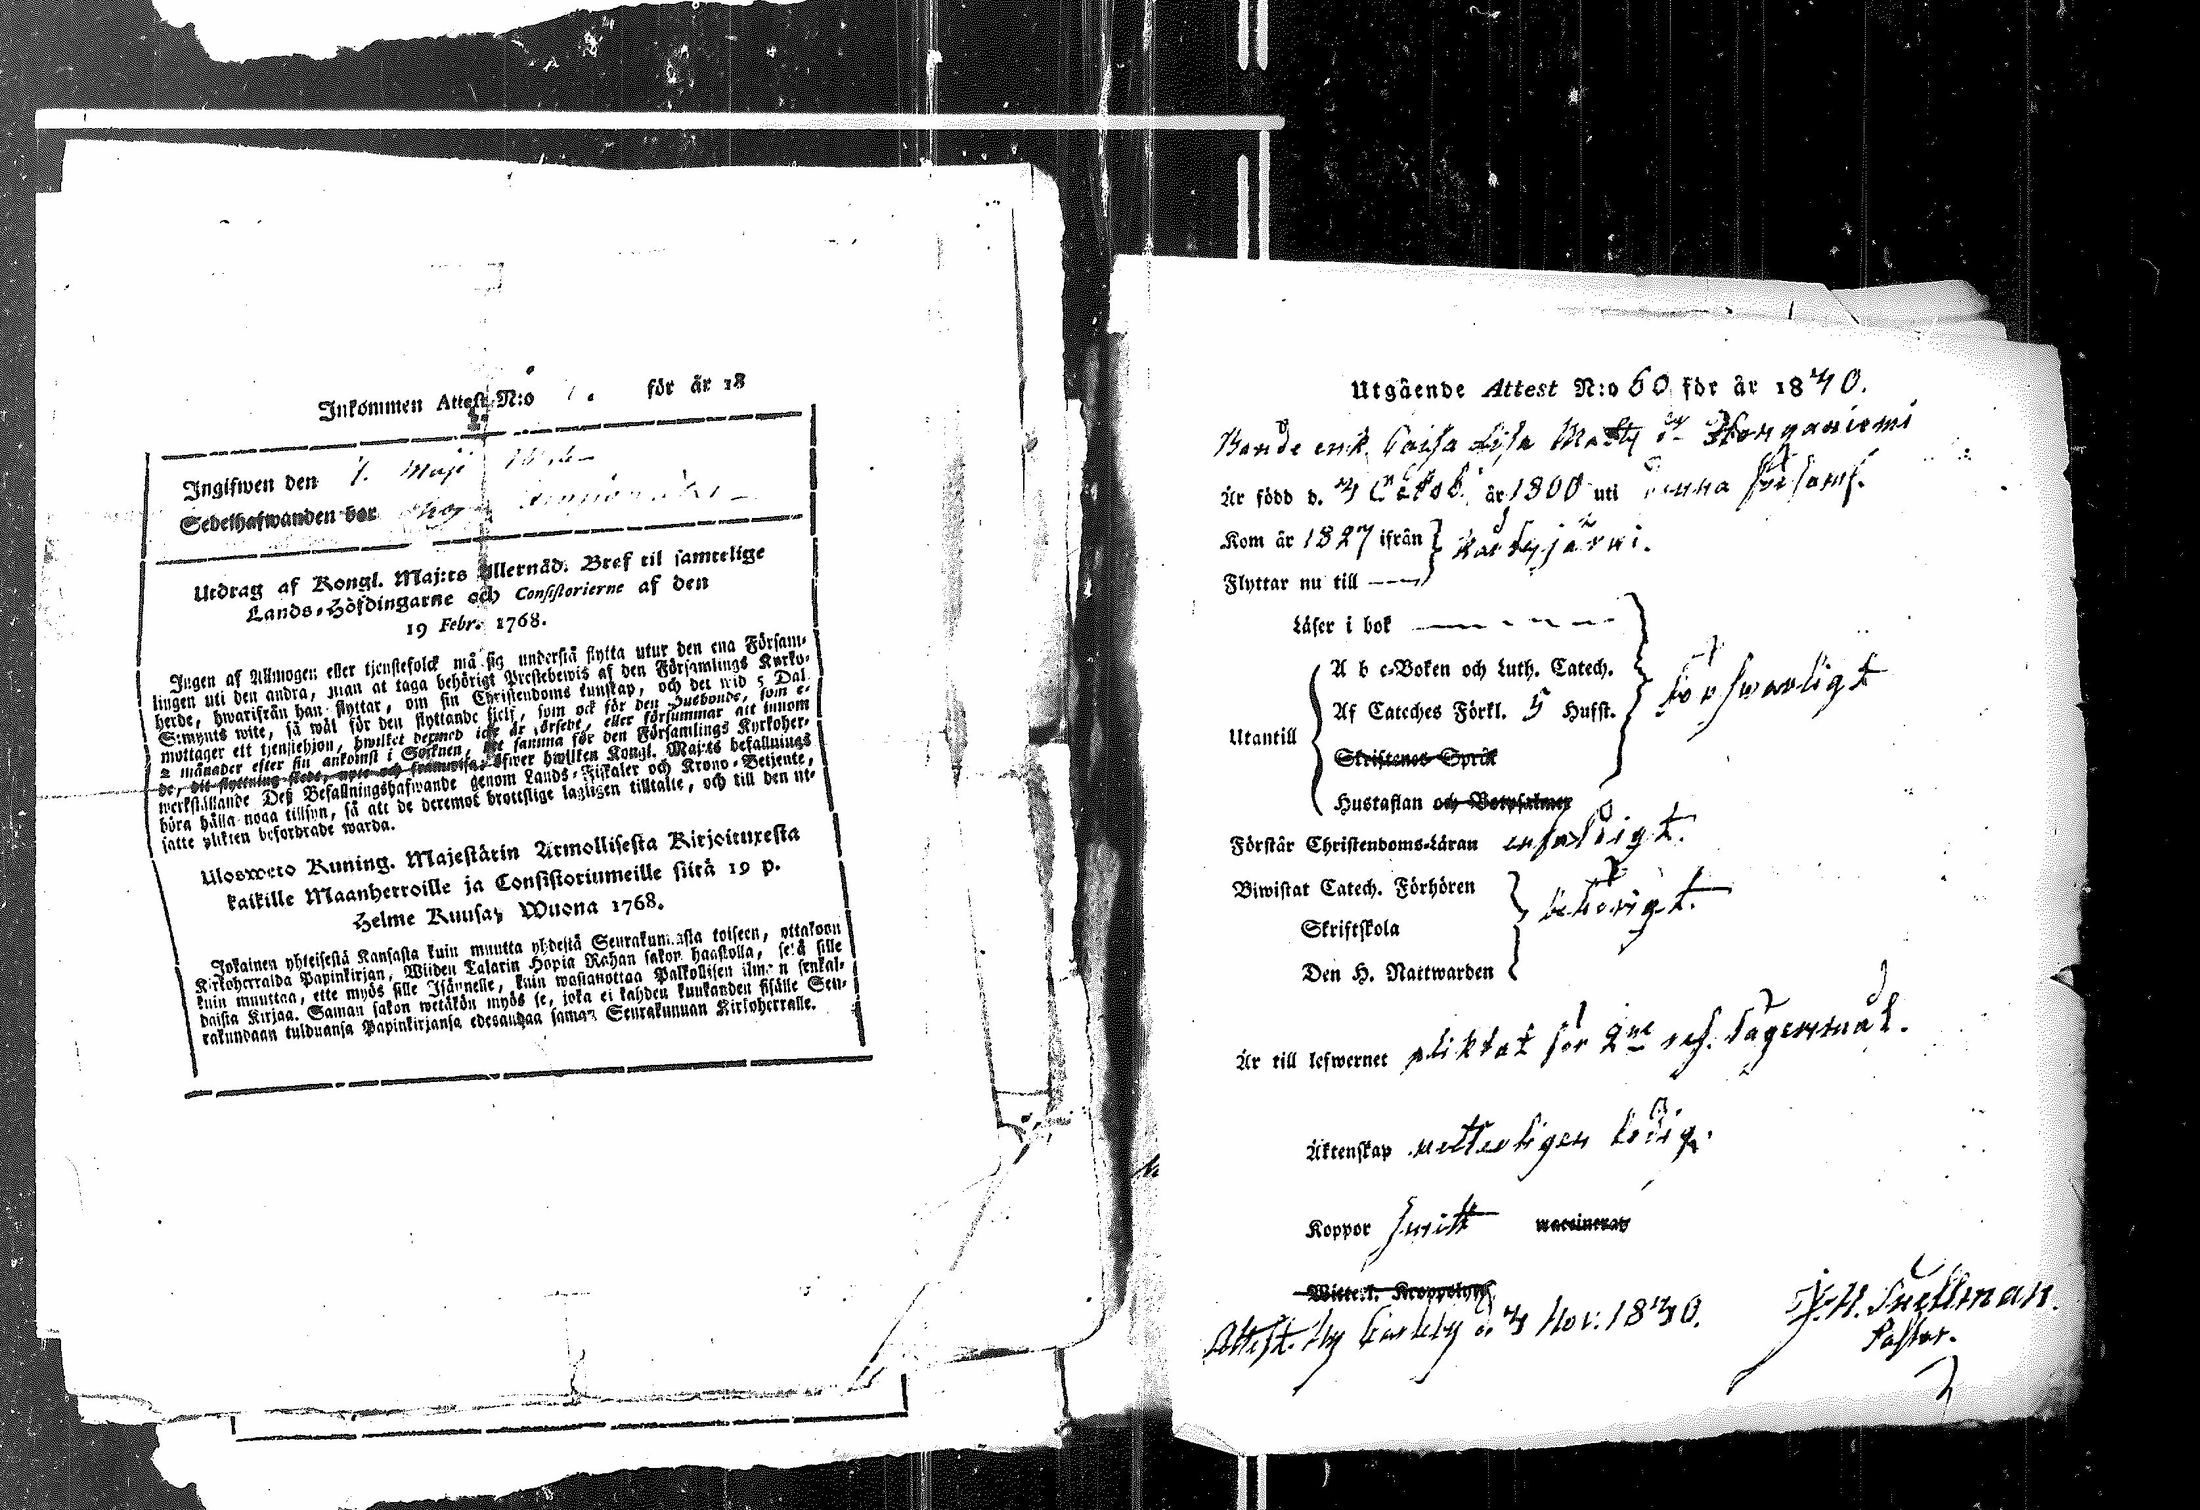 Inkommen Attest N:o för år 18
Ingifwen den 7. Maji
Sedelhafwanden bor
Utdrag af Kongl. Maj:ts Allernåd. Bref til samtelige
Lands-Höfdingarne och Consistorierne af den
19 Febr. 1768.
Ingen af Allmogen eller tjenstefolck må sig understå flytta utur den ena Försam-
lingen uti den andra, utan at taga behörigt Prestebewis af den Församlings Kyrko-
herde, hwarifrån han flyttar, om sin Christendoms kunskap, och det wid 5 Dal.
S:mynts wite, så wäl för den flyttande sielf, som ock för den Husbonde, som e-
mottager ett tjenstehjon, hwilket dermed icke är försedt, eller försummar att innom
2 månader efter sin ankomst i Socknen, det samma för den Församlings Kyrkoher-
de, dit flyttning skedt, upte och framwisa, öfwer hwilken Kongl. Maj:ts befallnings
werkställande Deß Befallningshafwande genom Lands-Fiskaler och Krono-Betjente,
böra hålla noga tillsyn, så att de deremot brottslige lagligen tilltalte, och till den ut-
satte plikten befordrade warda.
Ulosweto Kuning. Majestätin Armollisesta Kirjoituxesta
kaikille Maanherroille ja Consistoriumeille siitä 19 p.
Helme Kuusaß Wuona 1768.
Jokainen yhteisestä Kansasta kuin muutta yhdestä Seurakunnasta toiseen, ottakoon
Kirkoherralda Papinkirjan, Wiiden Talarin Hopia Rahan sakon haastolla, sekä sille
kuin muuttaa, ette myös sille Isännelle, kuin wastanottaa Palkollisen ilman senkal-
daista Kirjaa. Saman sakon wetäkön myös se, joka ei kahden kuukauden sisälle Seu-
rakundaan tulduansa Papinkirjansa edesandaa saman Seurakunnan Kirkoherralle.
Utgående Attest N:o 60 för år 1840.
Bonde enk. Caisa Lisa Matts dr Horganiemi
Är född d. 4 Octob. år 1800 uti denna församl.
Kom år 1827 ifrån Kortesjärvi.
Flyttar nu till
Läser i bok
A b c-Boken och Luth. Catech.
försvarligt
Af Cateches Förkl. 5 Hufst.
Utantill
Skriftenes Språk
Hustaflan och Botpsalmer
Förstår Christendoms-Läran enfaldigt.
Biwistat Catech. Förhören
behörigt.
Skriftskola
Den H. Nattwarden
Är till lefwernet pliktat för 2ne res. Lägersmål.
Äktenskap vetterligen ledig.
Koppor haft waccinerad
Attest. Ny Carleby d. 4 Nov. 1840.
J. H. Snellman.
Pastor.